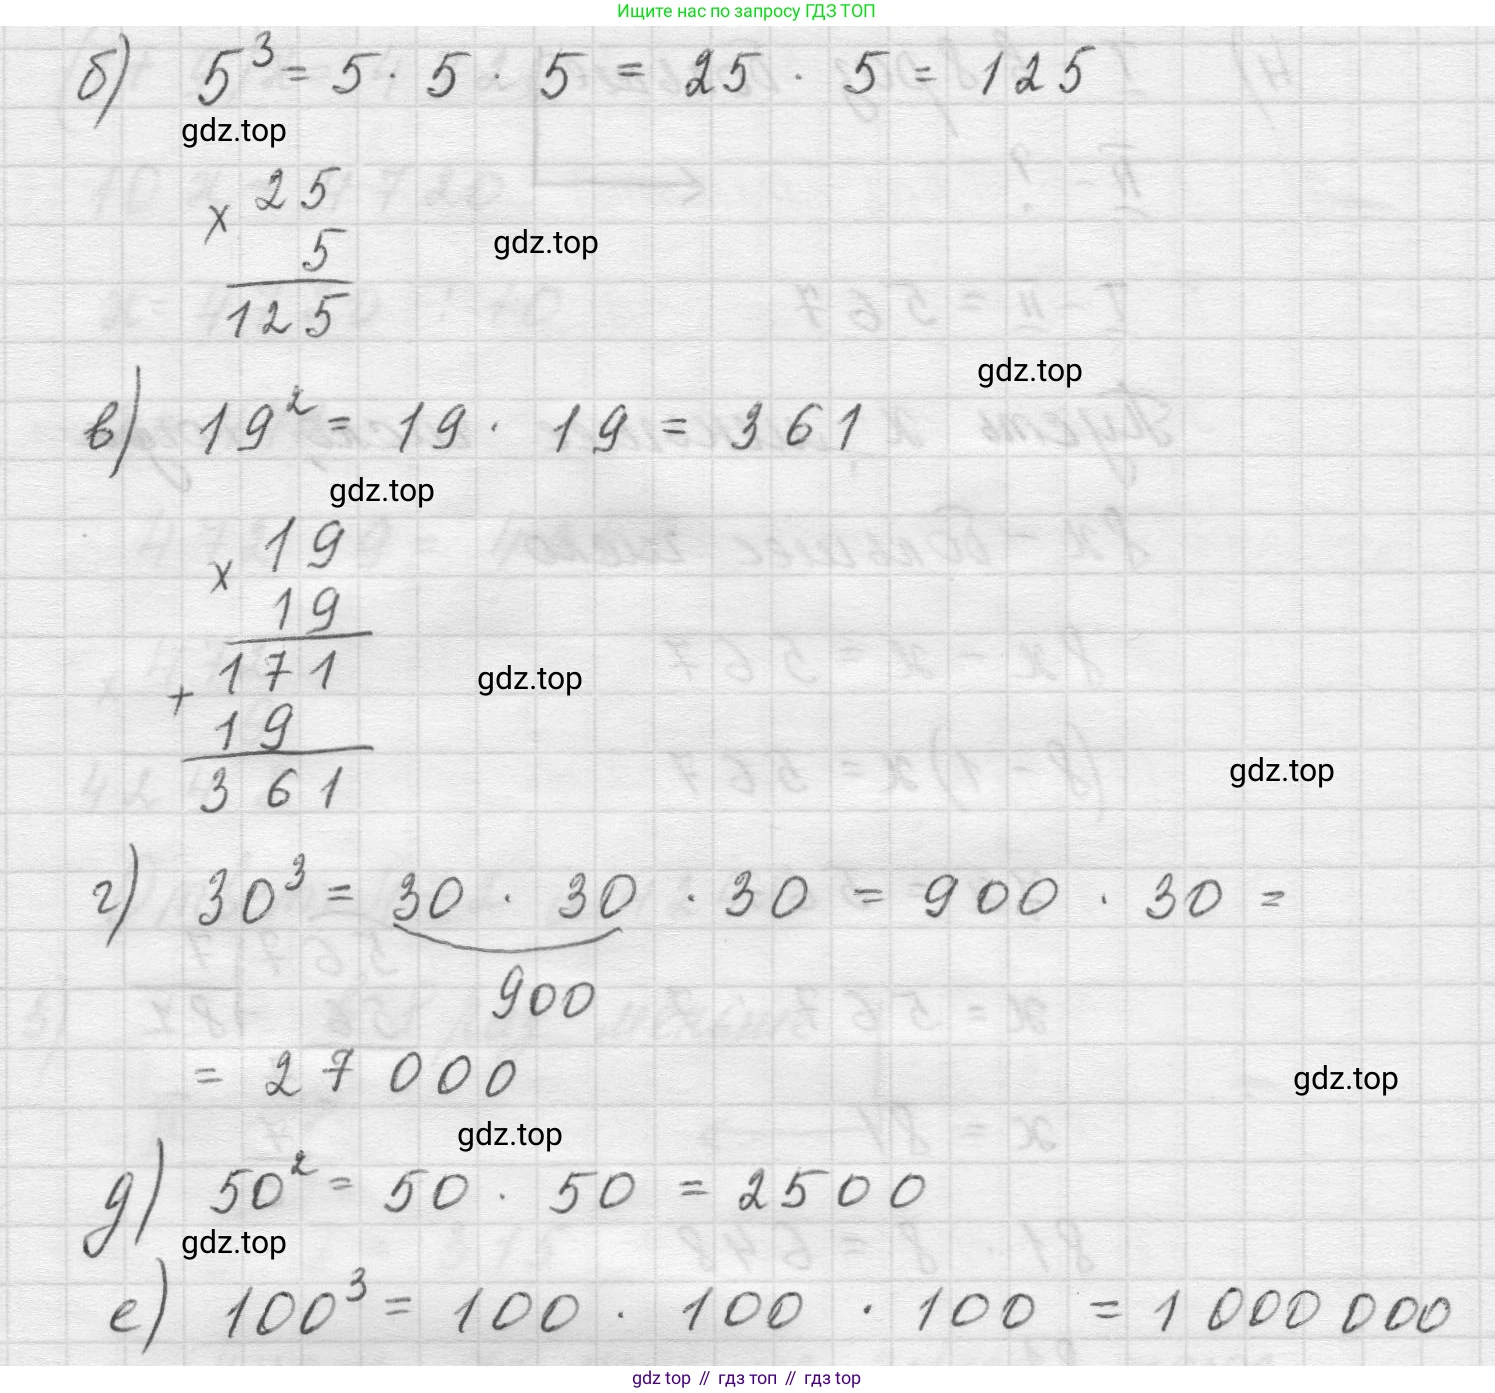 Ищите нас по запросу ГДЗ ТОП
б) 5³ = 5 · 5 · 5 = 25 · 5 = 125
gdz.top
× 25
5
gdz.top
125
gdz.top
в) 19² = 19 · 19 = 361
gdz.top
× 19
19
171
gdz.top
+ 19
361
gdz.top
г) 30³ = 30 · 30 · 30 = 900 · 30 =
900
= 27000
gdz.top
gdz.top
д) 50² = 50 · 50 = 2500
gdz.top
е) 100³ = 100 · 100 · 100 = 1 000 000
gdz top // гдз топ // гдз top